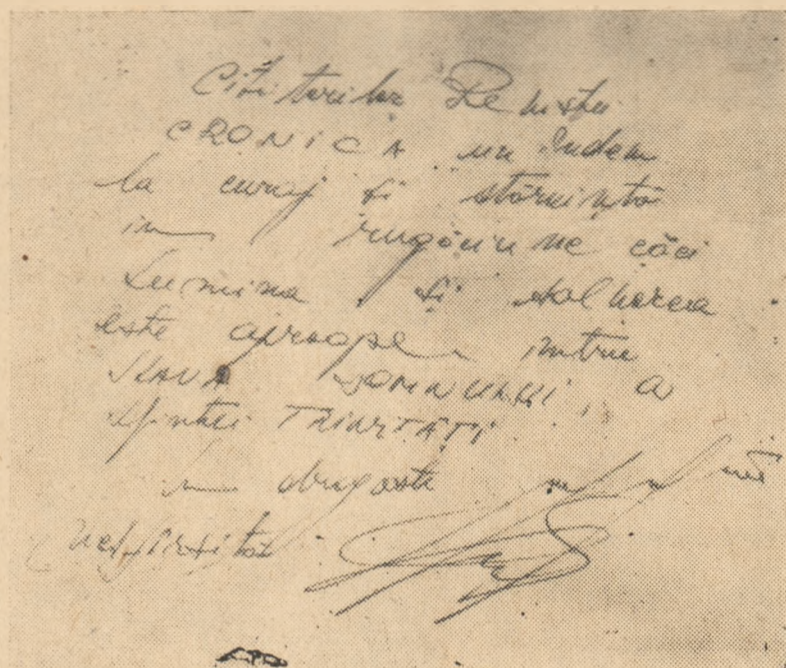 Cititorilor Revistei
CRONICA un îndemn
la curaj și stăruință
în rugăciune căci
Lumina și salvarea
este aproape întru
SLAVA DOMNULUI, a
Sfintei TRINITĂȚI
În dragoste
nesfîrșită